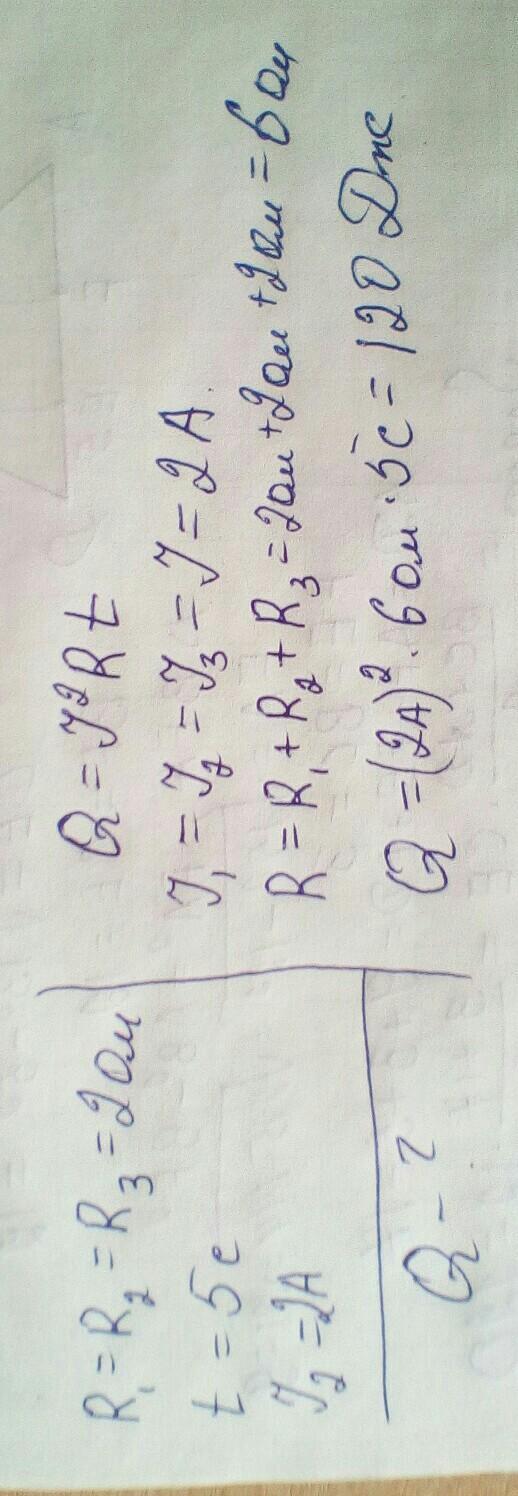 R₁ = R₂ = R₃ = 2 Ом
t = 5 с
J₂ = 2A
Q - ?
Q = J²Rt
J₁ = J₂ = J₃ = J = 2A.
R = R₁ + R₂ + R₃ = 2 Ом + 2 Ом + 2 Ом = 6 Ом
Q = (2A)² · 6 Ом · 5с = 120 Дж